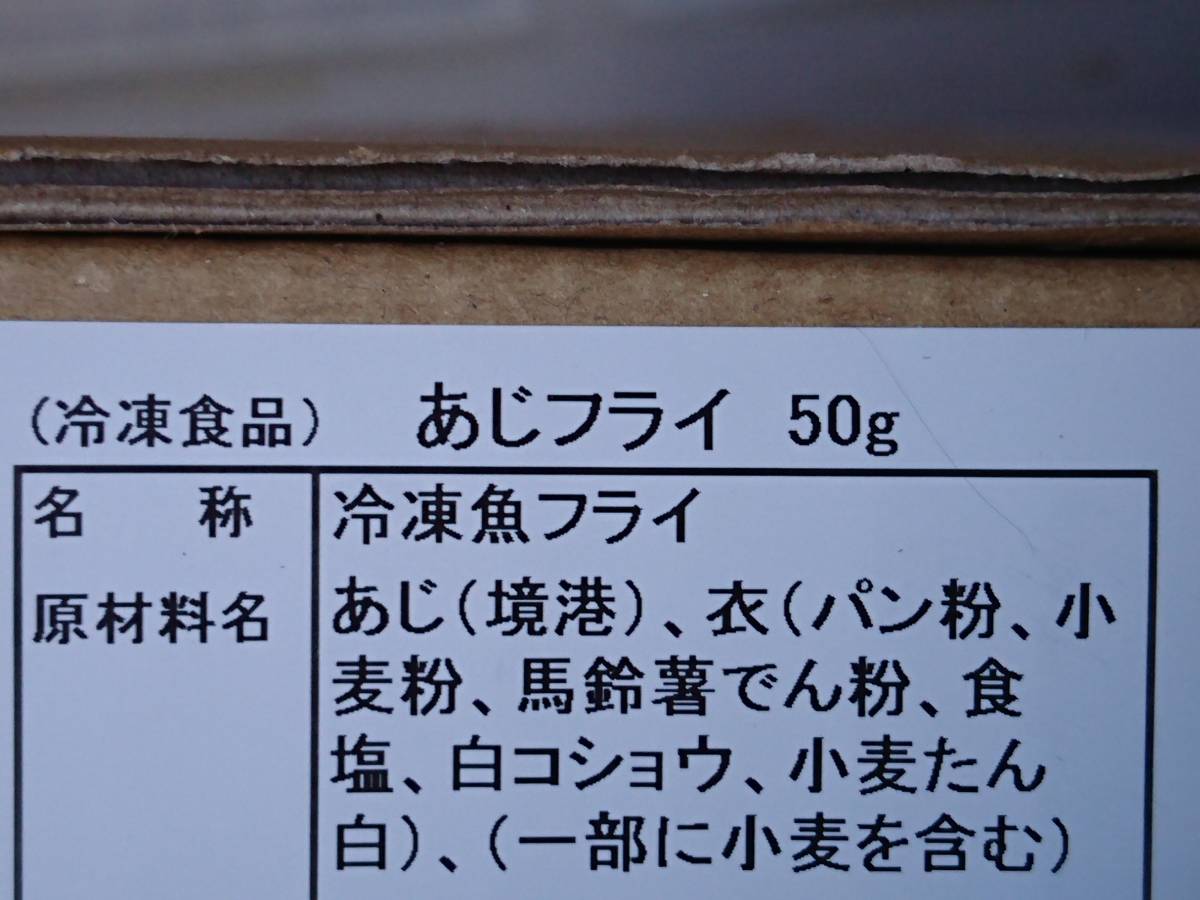 (冷凍食品) あじフライ 50g
名 称 冷凍魚フライ
原材料名 あじ(境港)、衣(パン粉、小
麦粉、馬鈴薯でん粉、食
塩、白コショウ、小麦たん
白)、(一部に小麦を含む)